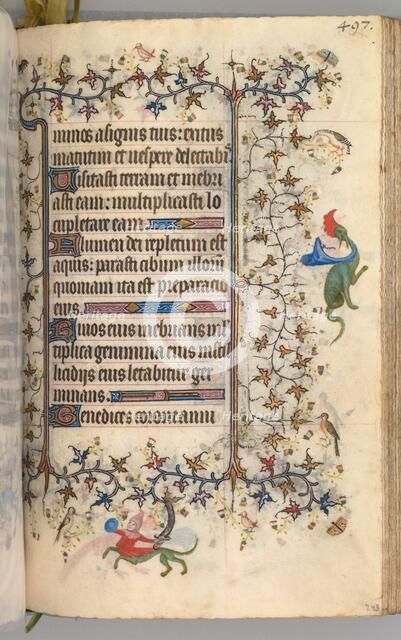 497.
minos a signis tuis: exitus
matutini et vespere delectabis
Visitasti terram et inebri
asti eam: multiplicasti lo
cupletare eam
Flumen dei repletum est
aquis: parasti cibum illorum
quoniam ita est preparatio
eius.
Rivos eius inebrians mul
tiplica genimina eius in stil
licidiis eius letabitur ger
minans.
Benedices corone anni
Heritage